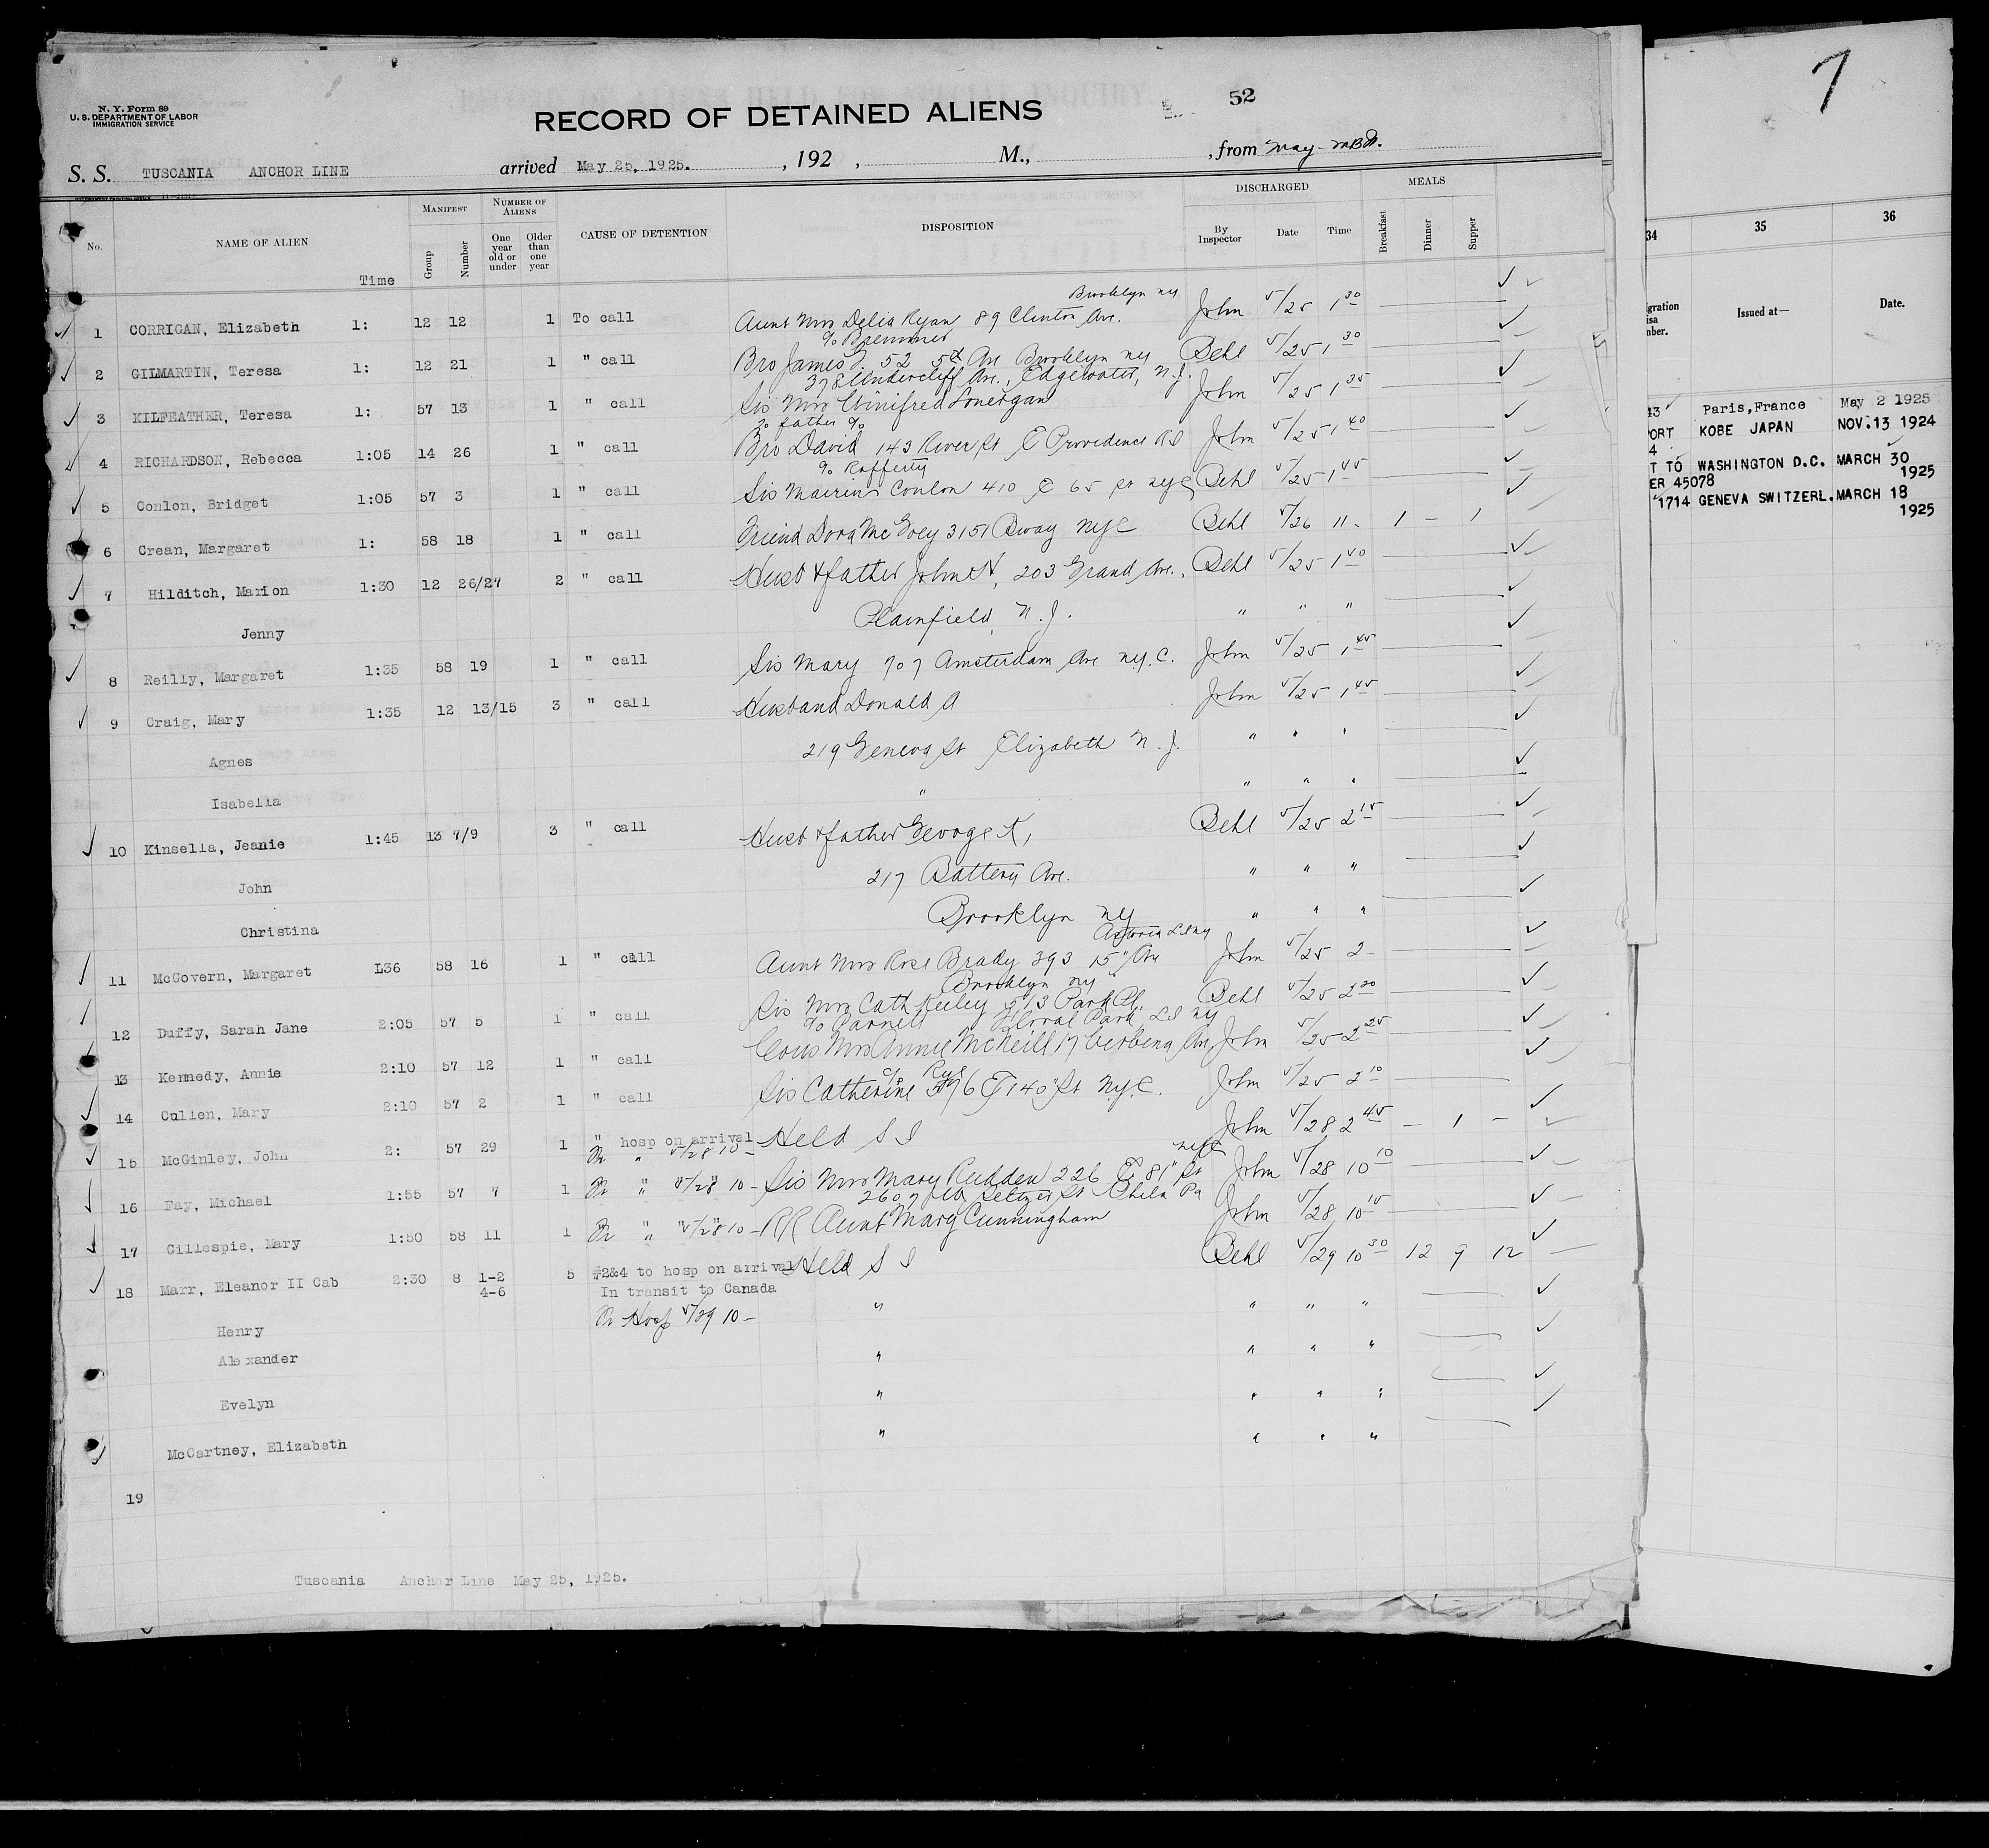 N. Y. Form 89
U. S. DEPARTMENT OF LABOR
IMMIGRATION SERVICE
52
RECORD OF DETAINED ALIENS
S. S. TUSCANIA ANCHOR LINE arrived May 25, 1925. , 192 , M., , from May
No. NAME OF ALIEN Time MANIFEST Group Number NUMBER OF ALIENS One year old or under Older than one year CAUSE OF DETENTION DISPOSITION DISCHARGED By Inspector Date Time MEALS Breakfast Dinner Supper
Brooklyn ny
1 CORRIGAN, Elizabeth 1: 12 12 1 To call Aunt Mrs Delia Ryan 89 Clinton Ave. John 5/25 1 30
c/o Bremner
2 GILMARTIN, Teresa 1: 12 21 1 " call Bro James 52 5th Ave Brooklyn ny Behl 5/25 1 30
378 Undercliff Ave., Edgewater, N.J.
3 KILFEATHER, Teresa 1: 57 13 1 " call Sis Mrs Winifred Lonergan John 5/25 1 35
to father c/o
4 RICHARDSON, Rebecca 1:05 14 26 1 " call Bro David 143 River St E Providence RI John 5/25 1 40
c/o Rafferty
5 Conlon, Bridget 1:05 57 3 1 " call Sis Conlon 410 E 65 St nyc Behl 5/25 1 45
6 Crean, Margaret 1: 58 18 1 " call Friend Dora 3151 Bway NYC Behl 5/26 11 - 1 - 1
7 Hilditch, Marion 1:30 12 26/27 2 " call Husb & father John H, 203 Grand Ave., Behl 5/25 1 40
Jenny Plainfield, N. J. " " "
8 Reilly, Margaret 1:35 58 19 1 " call Sis Mary 707 Amsterdam Ave n.y.c. John 5/25 1 45
9 Craig, Mary 1:35 12 13/15 3 " call Husband Donald A John 5/25 1 45
Agnes 219 Geneva St Elizabeth N. J. " " "
Isabella " " " "
10 Kinsella, Jeanie 1:45 13 7/9 3 " call Husb & father George K, Behl 5/25 2 15
John 217 Battery Ave. " " "
Christina Brooklyn ny " " "
Astoria LI ny
11 McGovern, Margaret L36 58 16 1 " call Aunt Mrs Rose Brady 393 15" Ave John 5/25 2 -
Brooklyn ny
12 Duffy, Sarah Jane 2:05 57 5 1 " call Sis Mrs Cath Keeley 513 Park Pl. Behl 5/25 2 20
c/o Parnell Floral Park LI ny
13 Kennedy, Annie 2:10 57 12 1 " call Cous Mrs Annie McNeill 17 Verbena Ave John 5/25 2 25
14 Cullen, Mary 2:10 57 2 1 " call Sis Catherine c/o E 140" St N.Y.C. John 5/25 2 10
15 McGinley, John 2: 57 29 1 " hosp on arrival Held S I John 5/28 2 45 - 1 -
" 5/28 10 -
nyc
16 Fay, Michael 1:55 57 7 1 " 5/28 10 - Sis Mrs Mary Rudden 226 E 81" St John 5/28 10 10
2607 Seltzer St Phila Pa
17 Gillespie, Mary 1:50 58 11 1 " 5/28 10 - RR Aunt Mary Cunningham John 5/28 10 15
18 Marr, Eleanor II Cab 2:30 8 1-2 4-6 5 #2&4 to hosp on arrival Held S I Behl 5/29 10 30 12 9 12
In transit to Canada
Henry Hosp 5/29 10 - " " " "
Alexander " " " "
Evelyn " " " "
McCartney, Elizabeth " " " "
19
Tuscania Anchor Line May 25, 1925.
7
34 35 36
Issued at— Date.
Paris,France May 2 1925
KOBE JAPAN NOV.13 1924
T TO WASHINGTON D.C. MARCH 30
ER 45078 1925
1714 GENEVA SWITZERL. MARCH 18
1925